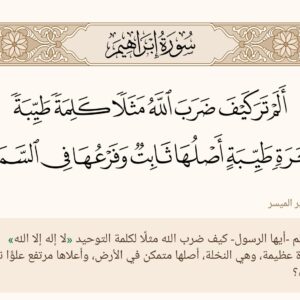 سُورَةُ إِبْرَاهِيمَ
أَلَمْ تَرَ كَيْفَ ضَرَبَ ٱللَّهُ مَثَلًا كَلِمَةً طَيِّبَةً
جَرَةٍ طَيِّبَةٍ أَصْلُهَا ثَابِتٌ وَفَرْعُهَا فِى ٱلسَّمَ
ر الميسر
م -أيها الرسول- كيف ضرب الله مثلًا لكلمة التوحيد «لا إله إلا الله»
ة عظيمة، وهي النخلة، أصلها متمكن في الأرض، وأعلاها مرتفع علوًّا ن
؟